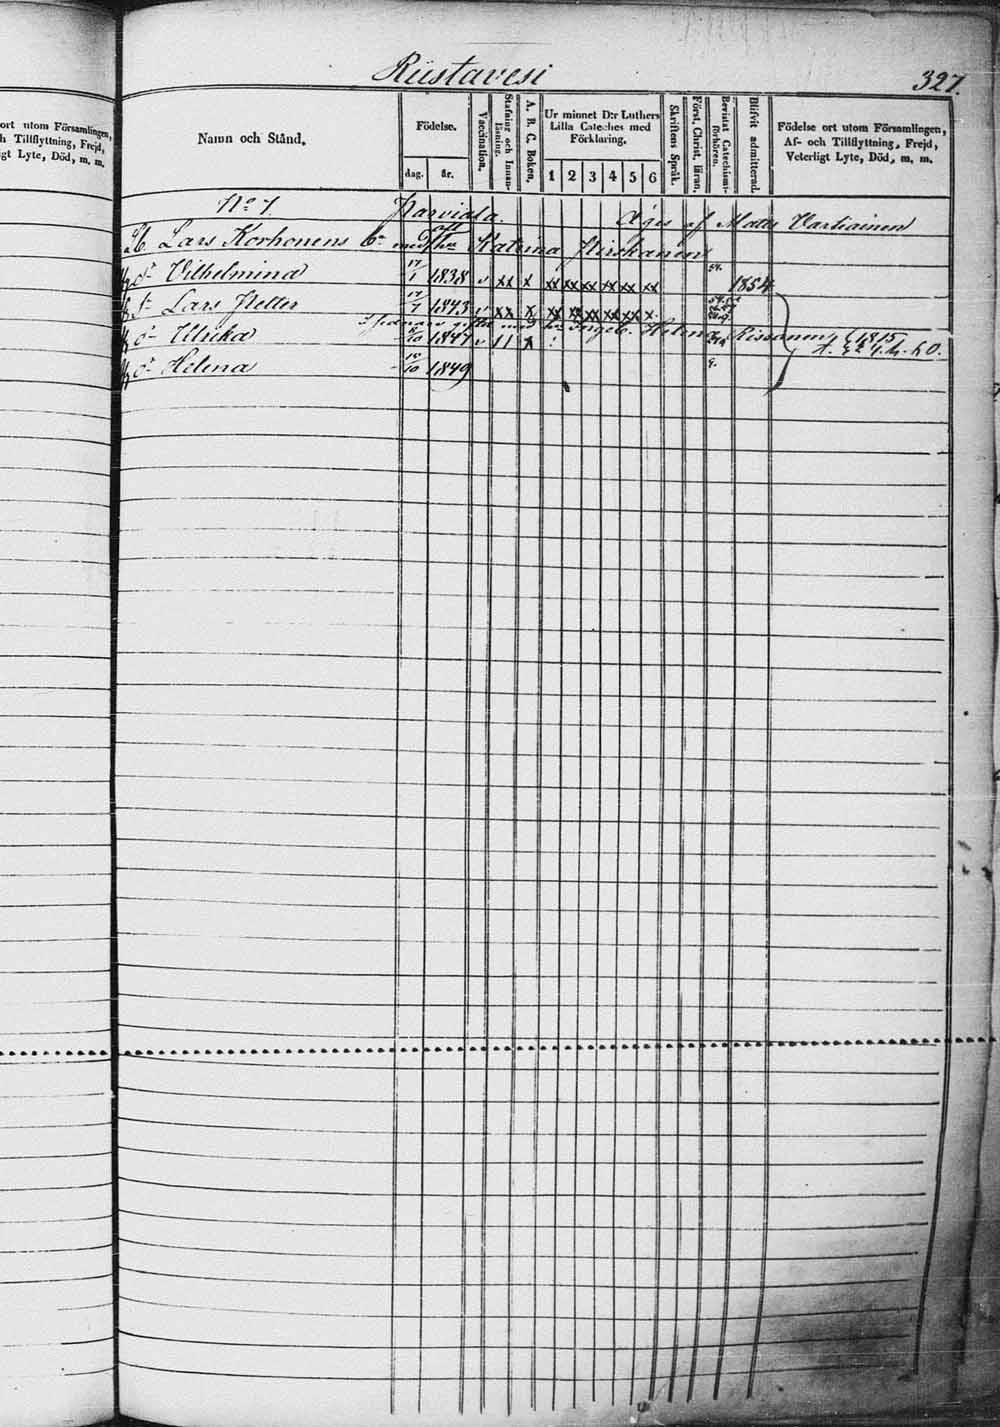 Riistavesi
327.
ort utom Församlingen,
h Tillflyttning, Frejd,
igt Lyte, Död, m. m.
Namn och Stånd.
Födelse.
dag.
år.
Vaccination.
Stafning och Innanläsning.
A. B. C. Boken.
Ur minnet D:r Luthers
Lilla Cateches med
Förklaring.
1 2 3 4 5 6
Skriftens Språk.
Först. Christ. läran.
Bevistat Catechismiförhören.
Blifvit admitterad.
Födelse ort utom Församlingen,
Af- och Tillflyttning, Frejd,
Veterligt Lyte, Död, m. m.
No 7. Harviala. Äges af Matts Vartiainen
Lars Korhonens med Katrina Hirskanen
Vilhelmina 17/1 1838 v xx x xx xx xx xx xx xx 54. 1854
Lars Petter 17/7 1843 v xx x xx xx xx xx xx x
Helena Rissanen 1815
Ulrika 1847 v 11 x
Helena 10/10 1849 9.